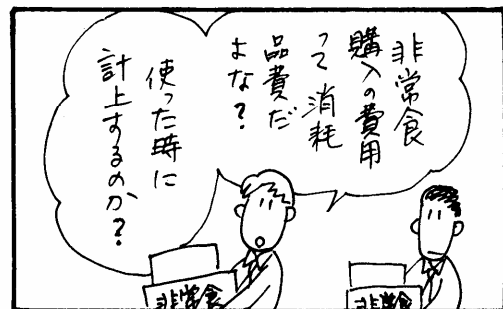 非常食
購入の費用
って消耗
品費だ
よな?
使った時に
計上するのか?
非常食
非常食